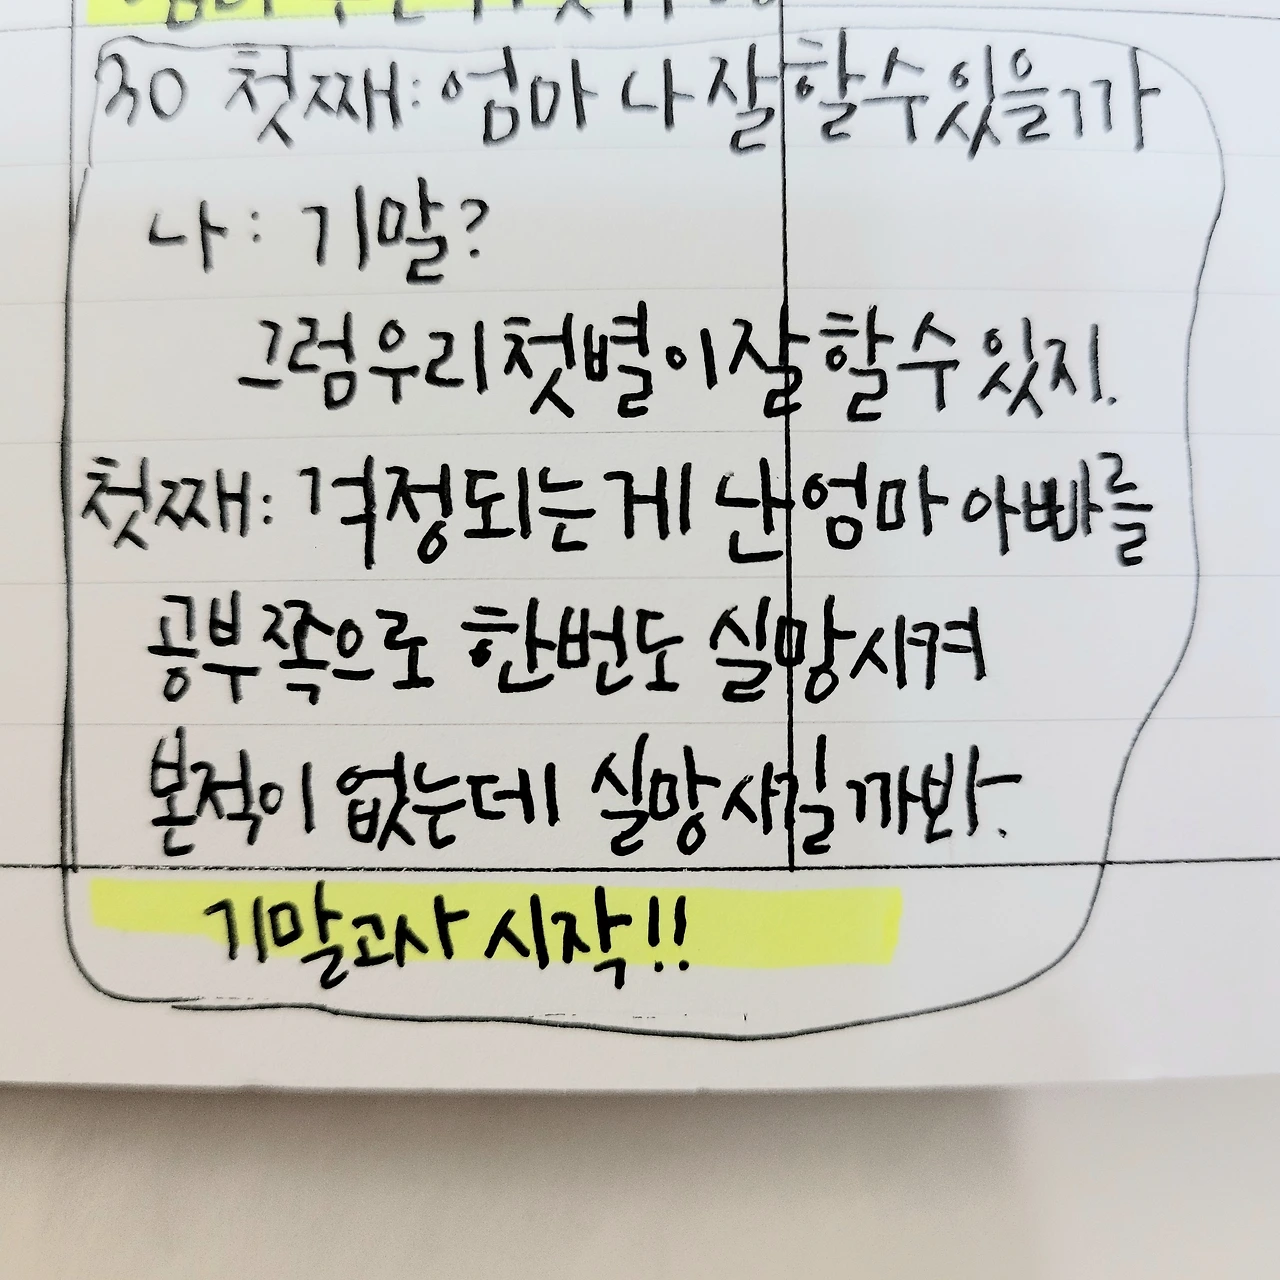 30 첫째: 엄마 나 잘할수있을까
나: 기말?
그럼 우리 첫별이 잘할수 있지.
첫째: 걱정되는게 난 엄마 아빠를
공부쪽으로 한번도 실망시켜
본적이 없는데 실망시길까봐.
기말고사 시작!!